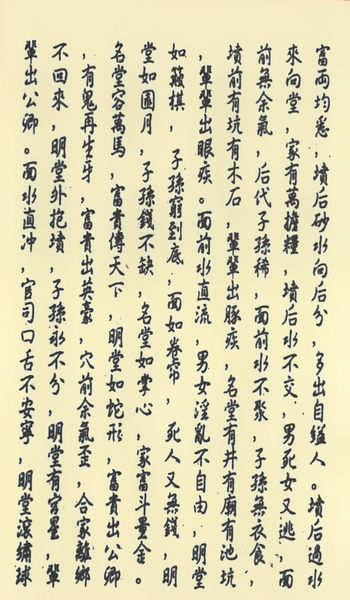 富両均悉,墳后砂水向后分,多出自縊人。墳后過水
來向堂,家有萬擔糧,墳后水不交,男死女又逃,面
前無余氣,后代子孫稀,面前水不聚,子孫無衣食,
墳前有坑有木石,輩輩出豚疾,名堂有井有廟有池坑
,輩輩出眼疾。面前水直流,男女淫亂不自由,明堂
如簸棋,子孫窮到底,面如卷帘,死人又無錢,明
堂如圓月,子孫錢不缺,名堂如掌心,家富斗量金。
名堂容萬馬,富貴傳天下,明堂如蛇形,富貴出公卿
,有鬼再生牙,富貴出英豪,穴前余氣歪,合家離鄉
不回來,明堂外抱墳,子孫永不分,明堂有星,輩
輩出公卿。面水直冲,官司口舌不安寧,明堂滾繡球